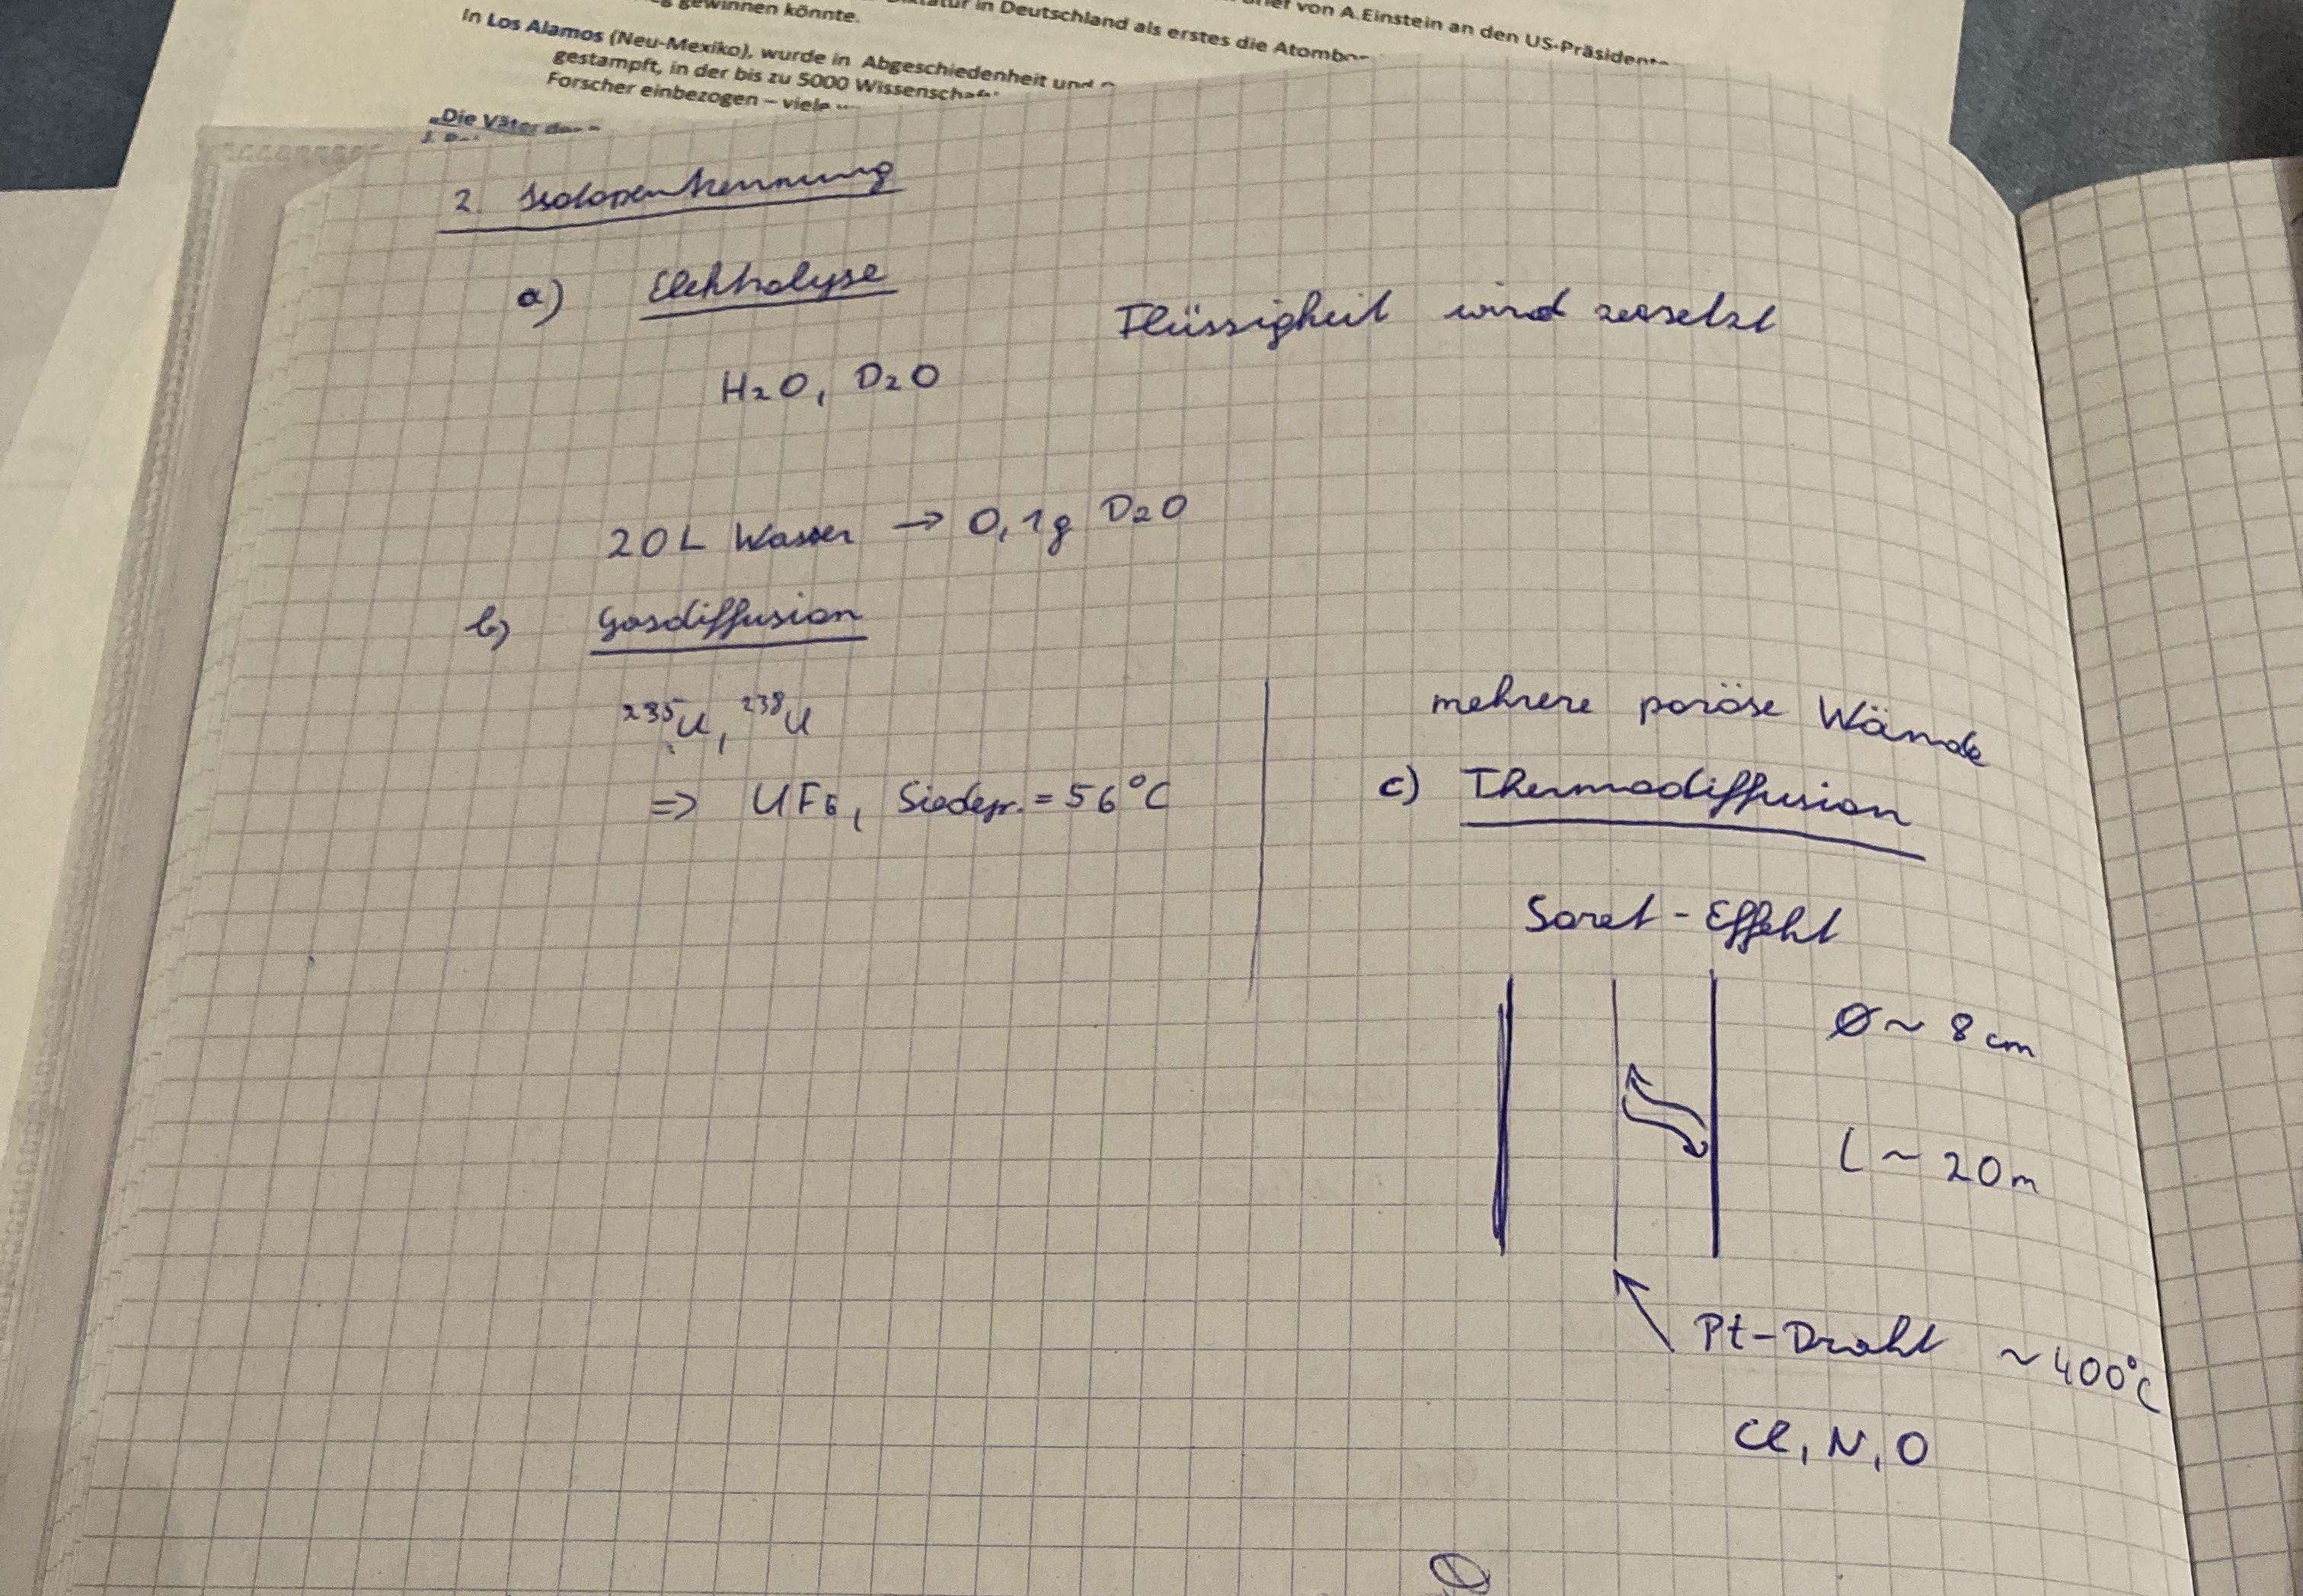 Brief von A.Einstein an den US-Präsidente
Diktatur in Deutschland als erstes die Atombo
gewinnen könnte.
In Los Alamos (Neu-Mexiko), wurde in Abgeschiedenheit und
gestampft, in der bis zu 5000 Wissenschaft
Forscher einbezogen – viele
„Die Väter der
2. Isotopentrennung
a) Elektrolyse
Flüssigkeit wird zersetzt
H₂O, D₂O
20L Wasser → 0,1g D₂O
b) Gasdiffusion
²³⁵U, ²³⁸U
⇒ UF₆, Siedep. = 56°C
mehrere poröse Wände
c) Thermodiffusion
Soret-Effekt
Ø ~ 8 cm
l ~ 20 m
Pt-Draht ~400°C
Cl, N, O